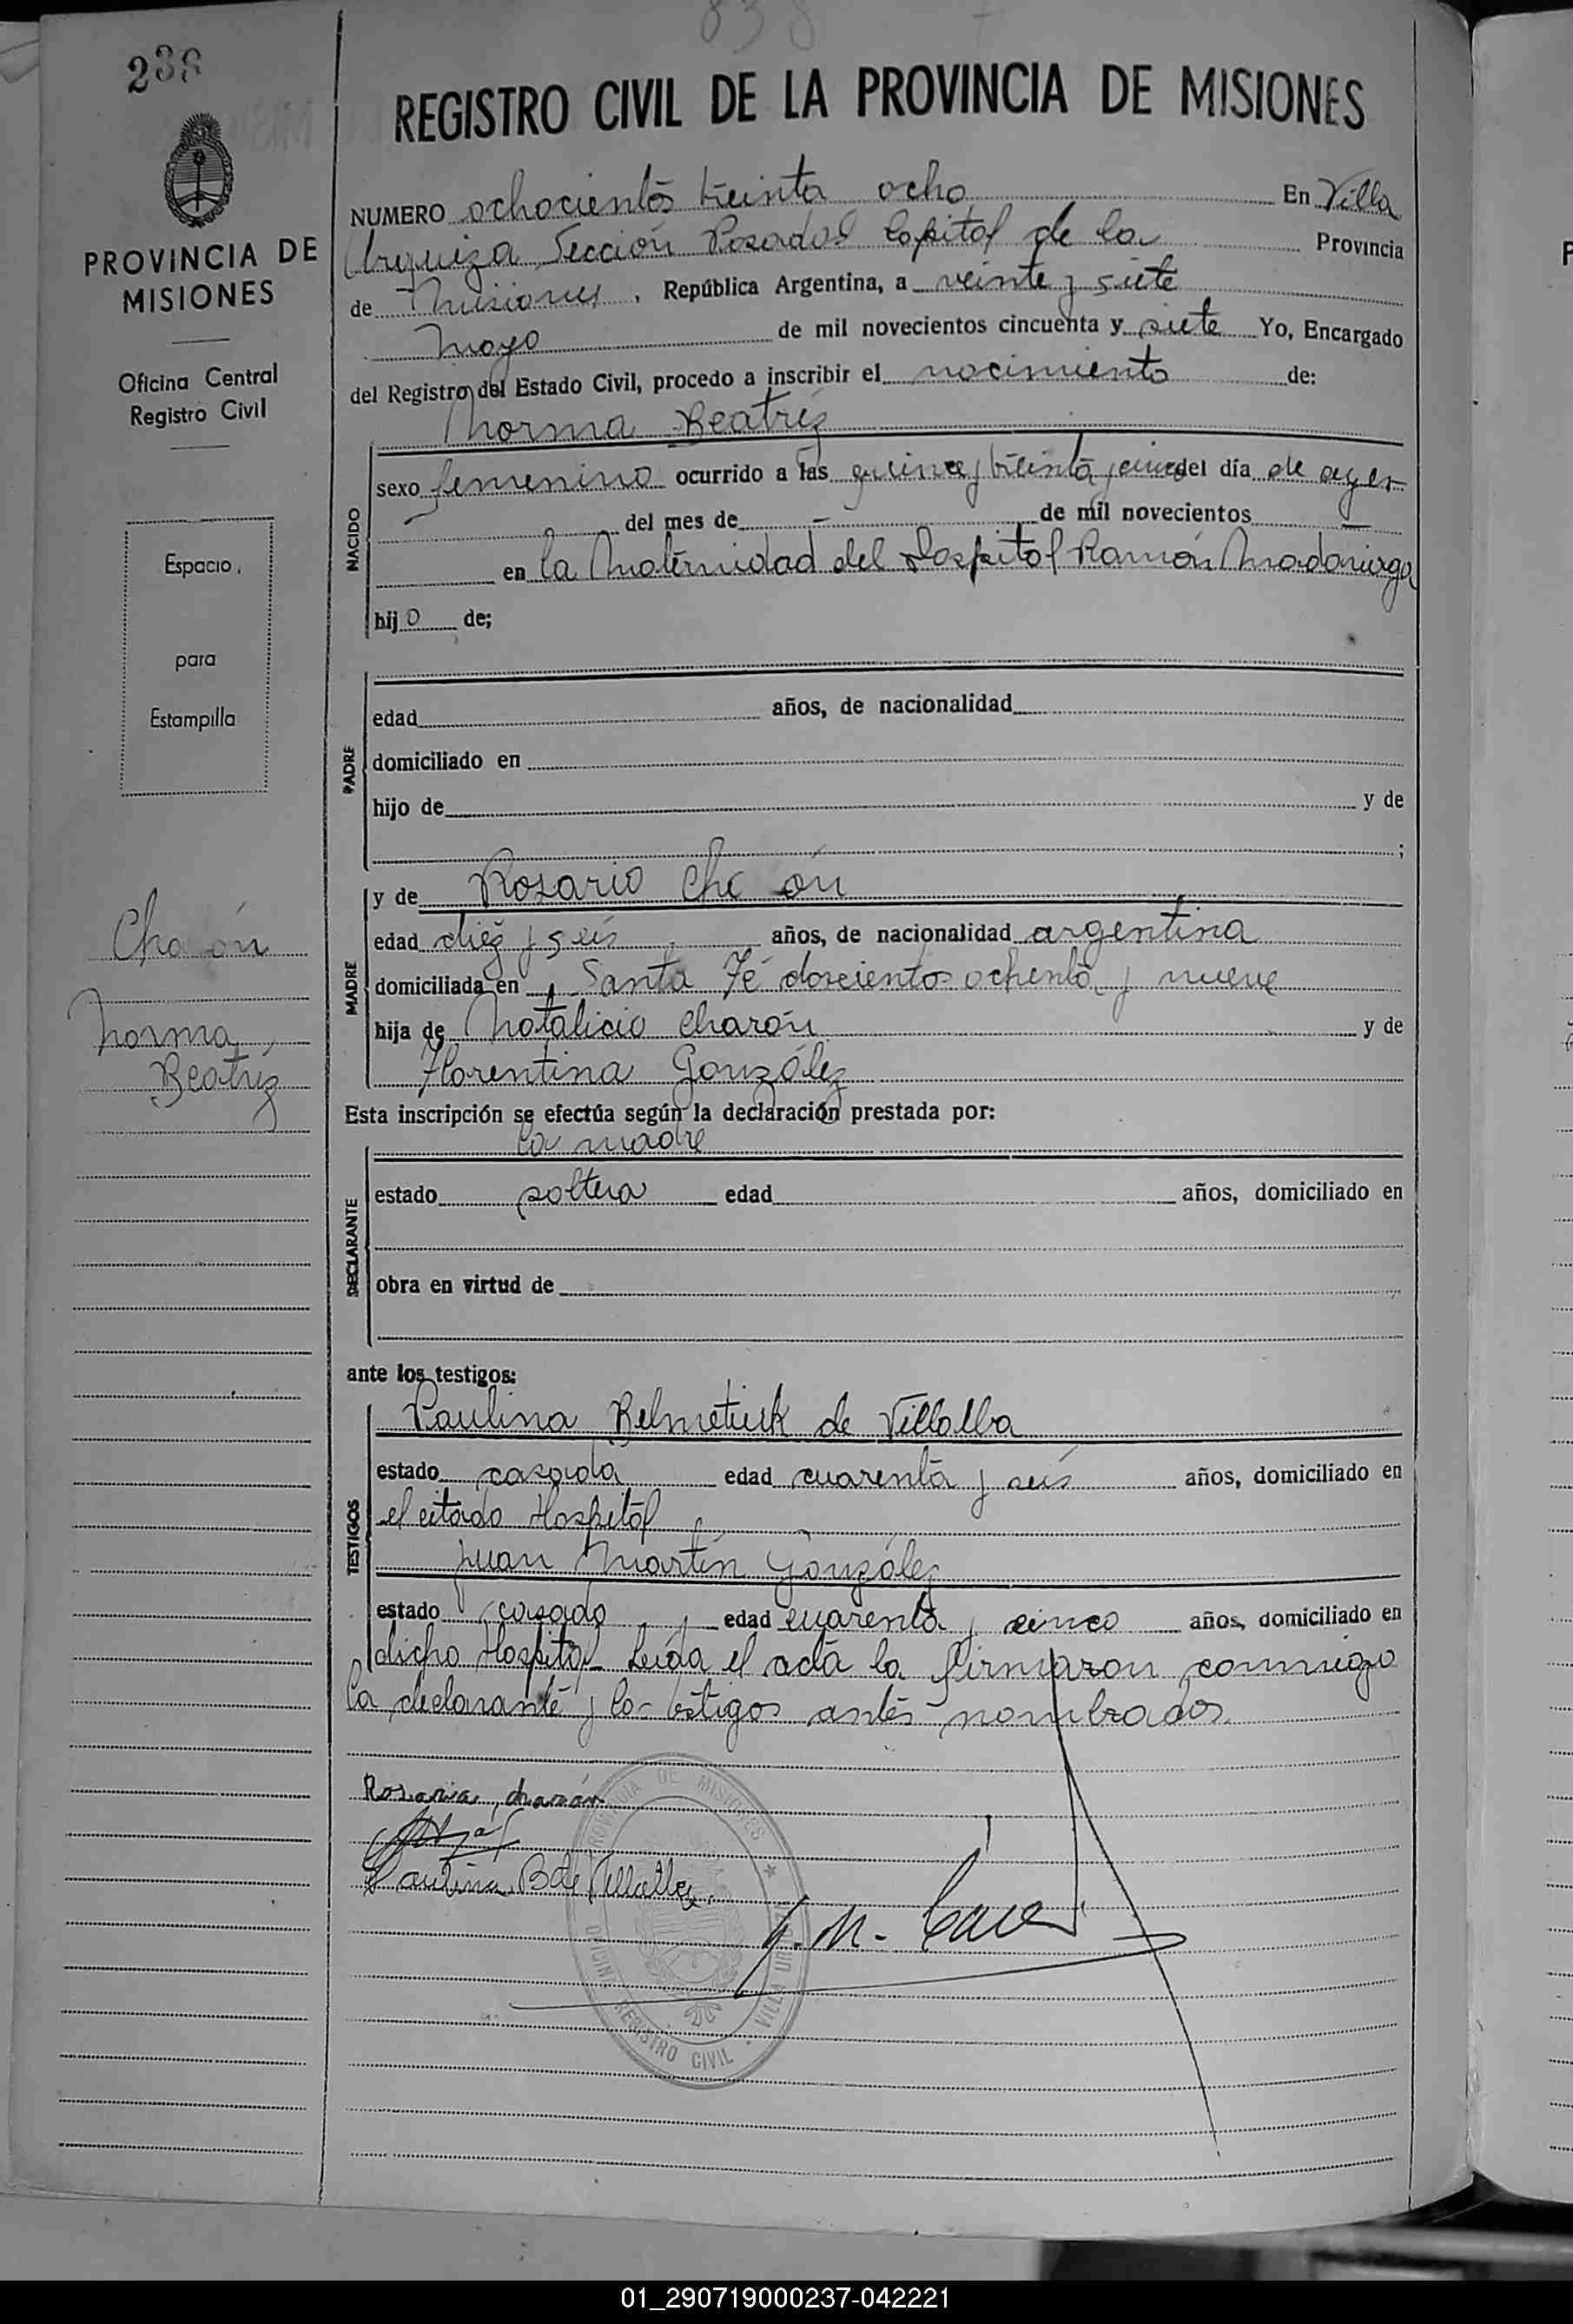 838
238
REGISTRO CIVIL DE LA PROVINCIA DE MISIONES
PROVINCIA DE
MISIONES
Oficina Central
Registro Civil
Espacio
para
Estampilla
NUMERO ochocientos treinta ocho En Villa
Urquiza Sección Posadas Capital de la Provincia
de Misiones, República Argentina, a veinte y siete
Mayo de mil novecientos cincuenta y siete Yo, Encargado
del Registro del Estado Civil, procedo a inscribir el nacimiento de:
Norma Beatriz
NACIDO
sexo femenino ocurrido a las quince y treinta y cinco del día de ayer
del mes de - de mil novecientos -
en la Maternidad del Hospital Ramón Madariaga
hijo de;
PADRE
edad años, de nacionalidad
domiciliado en
hijo de y de
;
MADRE
y de Rosario Cha ón
edad diez y seis años, de nacionalidad argentina
domiciliada en Santa Fé doscientos ochenta y nueve
hija de Natalicio Charón y de
Florentina González
Cha ón
Norma
Beatriz
Esta inscripción se efectúa según la declaración prestada por:
la madre
DECLARANTE
estado soltera edad años, domiciliado en
obra en virtud de
ante los testigos:
TESTIGOS
Paulina Belmetiuk de Villalba
estado casada edad cuarenta y seis años, domiciliado en
el citado Hospital
Juan Martín González
estado casado edad cuarenta y cinco años, domiciliado en
dicho Hospital Leída el acta la firmaron conmigo
la declarante y los testigos antes nombrados.
Rosaria charón
Paulina B de Villalba
PROVINCIA DE MISIONES
OFICINA REGISTRO CIVIL - VILLA URQUIZA
01_290719000237-042221